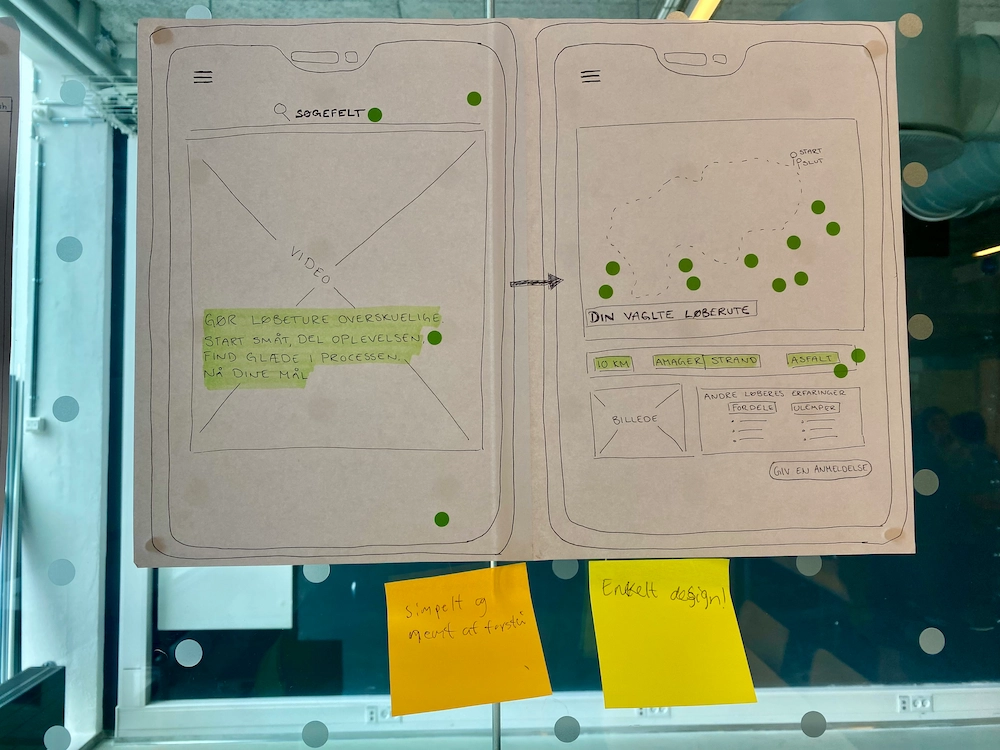 SØGEFELT
VIDEO
GØR LØBETURE OVERSKUELIGE
START SMÅT, DEL OPLEVELSEN,
FIND GLÆDE I PROCESSEN,
NÅ DINE MÅL
START
SLUT
DIN VAGLTE LØBERUTE
10 KM AMAGER STRAND ASFALT
BILLEDE
ANDRE LØBERES ERFARINGER
FORDELE ULEMPER
GIV EN ANMELDELSE
Simpelt og
nemt at forstå
Enkelt design!